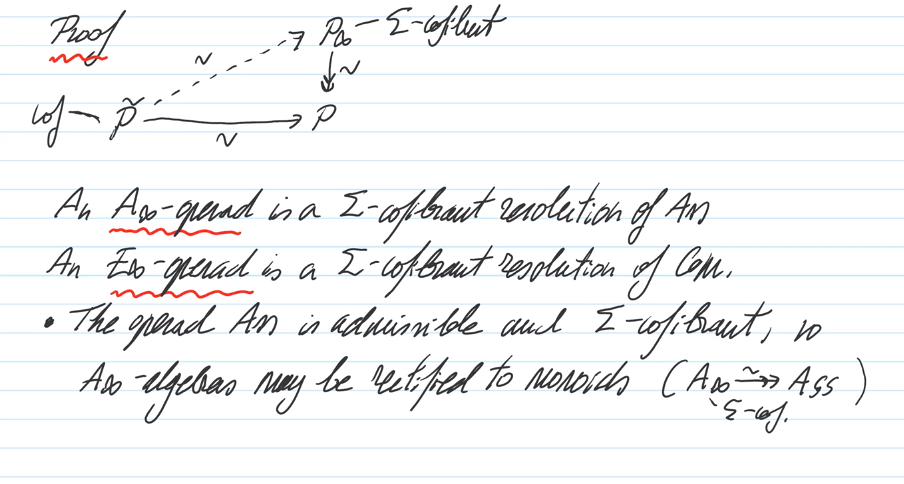 Proof
~ P∞ — Σ-cofibrant
~
cof — P̃ → P
~
An A∞-operad is a Σ-cofibrant resolution of Ass
An E∞-operad is a Σ-cofibrant resolution of Com.
• The operad Ass is admissible and Σ-cofibrant, so
A∞-algebras may be rectified to monoids (A∞ ↠ Ass)
~
Σ-cof.